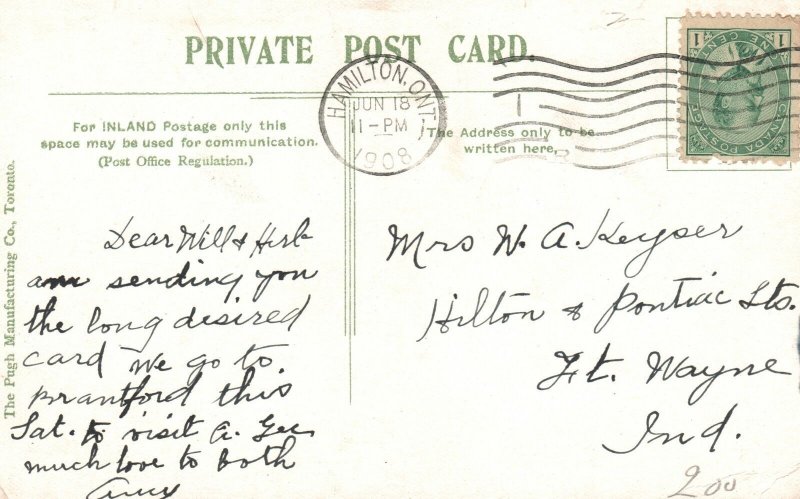 PRIVATE POST CARD.
HAMILTON, ONT.
JUN 18
11-PM
1908
1 ONE CENT 1
CANADA POSTAGE
For INLAND Postage only this
space may be used for communication.
(Post Office Regulation.)
The Address only to be
written here.
The Pugh Manufacturing Co., Toronto.
Dear Will &
am sending you
the long desired
card we go to
Brantford this
Sat. to visit a.
much love to both
Mrs W. A. Keyser
Hilton & Pontiac Sts.
Ft. Wayne
Ind.
2 00